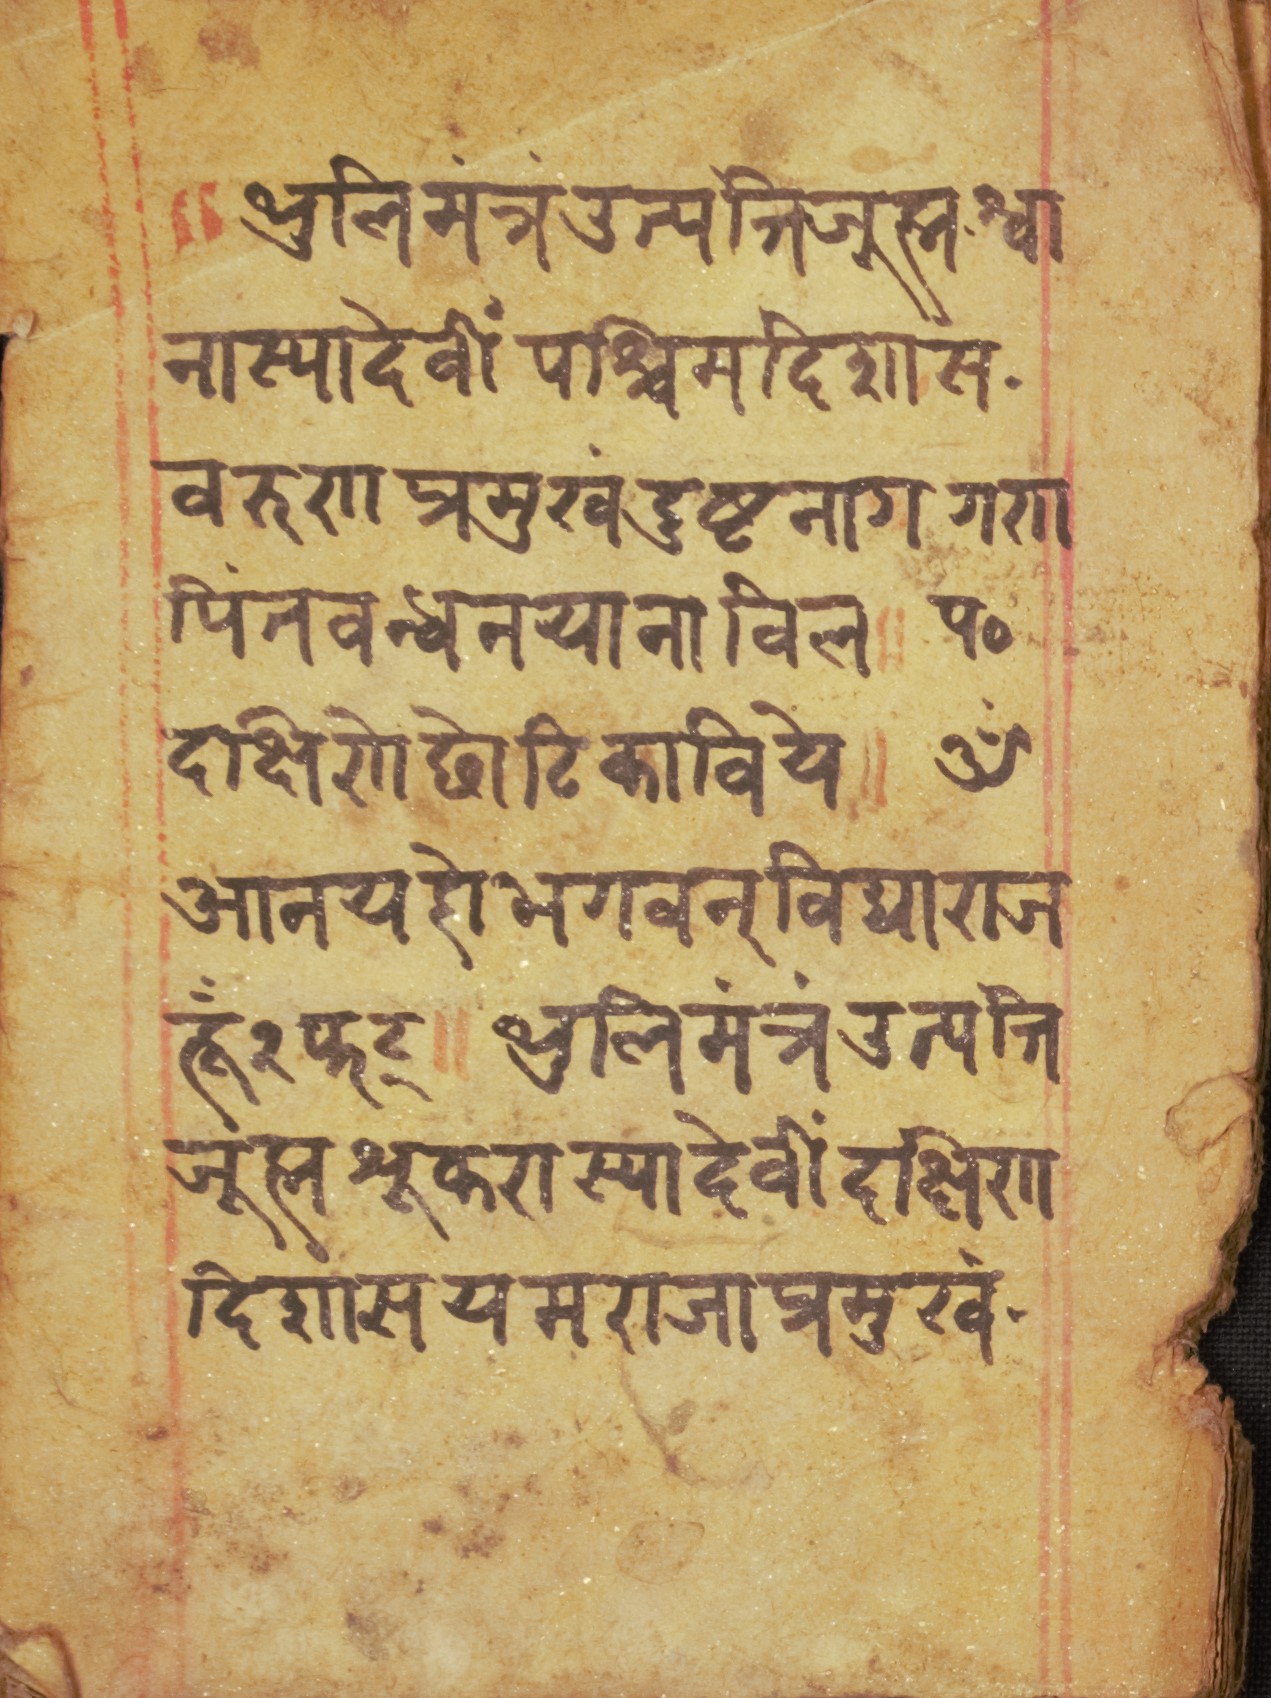 ॥ थुलि मंत्रं उत्पत्ति जूह्म श्वा
नास्या देवीं पश्चिम दिशास.
वरुण प्रमुखं दुष्ट नाग गण
पिंत वन्धन याना विल ॥ प०
दक्षिणे छोटिका विये ॥ ॐ
आनय हो भगवन् विद्याराज
हूँ २ फट् ॥ थुलि मंत्रं उत्पत्ति
जूह्म श्रूकरास्या देवीं दक्षिण
दिशास यमराजा प्रमुखं.